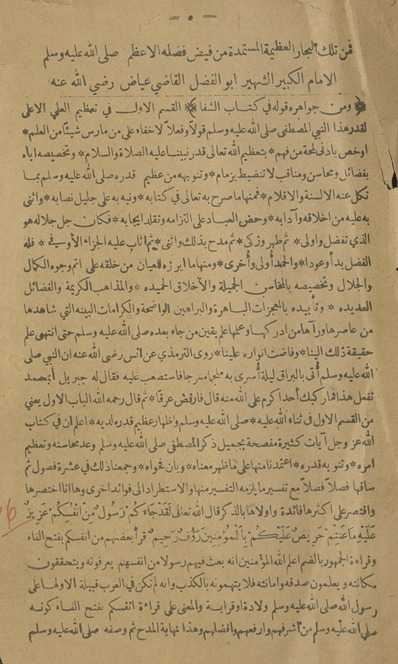 — ٥ —
فمن تلك البحار العظيمة المستمدة من فيض فضله الاعظم صلى الله عليه وسلم
الامام الكبير الشهير ابو الفضل القاضي عياض رضي الله عنه
﴿ ومن جواهره قوله في كتاب الشفا ﴾ القسم الاول في تعظيم العلي الاعلى
لقدر هذا النبي المصطفى صلى الله عليه وسلم قولاً وفعلاً لا خفاء على من مارس شيئاً من العلم *
او خص بادنى لمحة من فهم * بتعظيم الله تعالى قدر نبينا عليه الصلاة والسلام * وتخصيصه اياه
بفضائل ومحاسن ومناقب لا تنضبط بزمام * وتنويهه من عظيم قدره صلى الله عليه وسلم بما
تكل عنه الالسنة والاقلام * فمنها ما صرح به تعالى في كتابه * ونبه به على جليل نصابه * واثنى
به عليه من اخلاقه وآدابه * وحض العباد على التزامه وتقلد ايجابه * فكان جل جلاله هو
الذي تفضل واولى * ثم طهر وزكى * ثم مدح بذلك واثنى * ثم اثاب عليه الجزاء الأوسع * فله
الفضل بدأ وعودا * والحمد أولى وأخرى * ومنها ما ابرزه للعيان من خلقه على اتم وجوه الكمال
والجلال وتخصيصه بالمحاسن الجميلة والأخلاق الحميده * والمذاهب الكريمة والفضائل
العديده * وتأييده بالمعجزات الباهرة والبراهين الواضحة والكرامات البينه التي شاهدها
من عاصره ورآها من ادركه وعلمها علم يقين من جاء بعده صلى الله عليه وسلم حتى انتهى علم
حقيقة ذلك الينا * وفاضت انواره علينا * روى الترمذي عن انس رضى الله عنه ان النبي صلى
الله عليه وسلم أتى بالبراق ليلة أسرى به ملجما مسرجا فاستصعب عليه فقال له جبريل أبمحمد
تفعل هذا فما ركبك أحد اكرم على الله منه قال فارفض عرقا * ثم قال رحمه الله الباب الاول يعني
من القسم الاول في ثناء الله عليه * صلى الله عليه وسلم واظهار عظيم قدره لديه * اعلم ان في كتاب
الله عز وجل آيات كثيرة مفصحة بجميل ذكر المصطفى صلى الله عليه وسلم وعد محاسنه وتعظيم
امره * وتنويه قدره * اعتمدنا منها على ما ظهر معناه * وبان فحواه * وجمعنا ذلك في عشرة فصول ثم
ساقها فصلاً فصلاً مع تفسير ما يلزمه التفسير منها والاستطراد الى فوائد اخرى وها انا اختصرها
واقتصر على اكثرها فائدة واولاها بالذكر قال الله تعالى لَقَدْ جَاءَكُمْ رَسُولٌ مِنْ أَنْفُسِكُمْ عَزِيزٌ
عَلَيْهِ مَا عَنِتُّمْ حَرِيصٌ عَلَيْكُمْ بِالْمُؤْمِنِينَ رَؤُفٌ رَحِيمٌ قرأ بعضهم من انفسكم بفتح الفاء
وقراءة الجمهور بالضم اعلم الله المؤمنين انه بعث فيهم رسولا من انفسهم يعرفونه ويتحققون
مكانته ويعلمون صدقه وامانته فلا يتهمونه بالكذب وانه لم تكن في العرب قبيلة الا ولها على
رسول الله صلى الله عليه وسلم ولادة او قرابة * والمعنى على قراءة انفسكم بفتح الفاء كونه
صلى الله عليه وسلم من أشرفهم وارفعهم وافضلهم وهذا نهاية المدح ثم وصفه صلى الله عليه وسلم